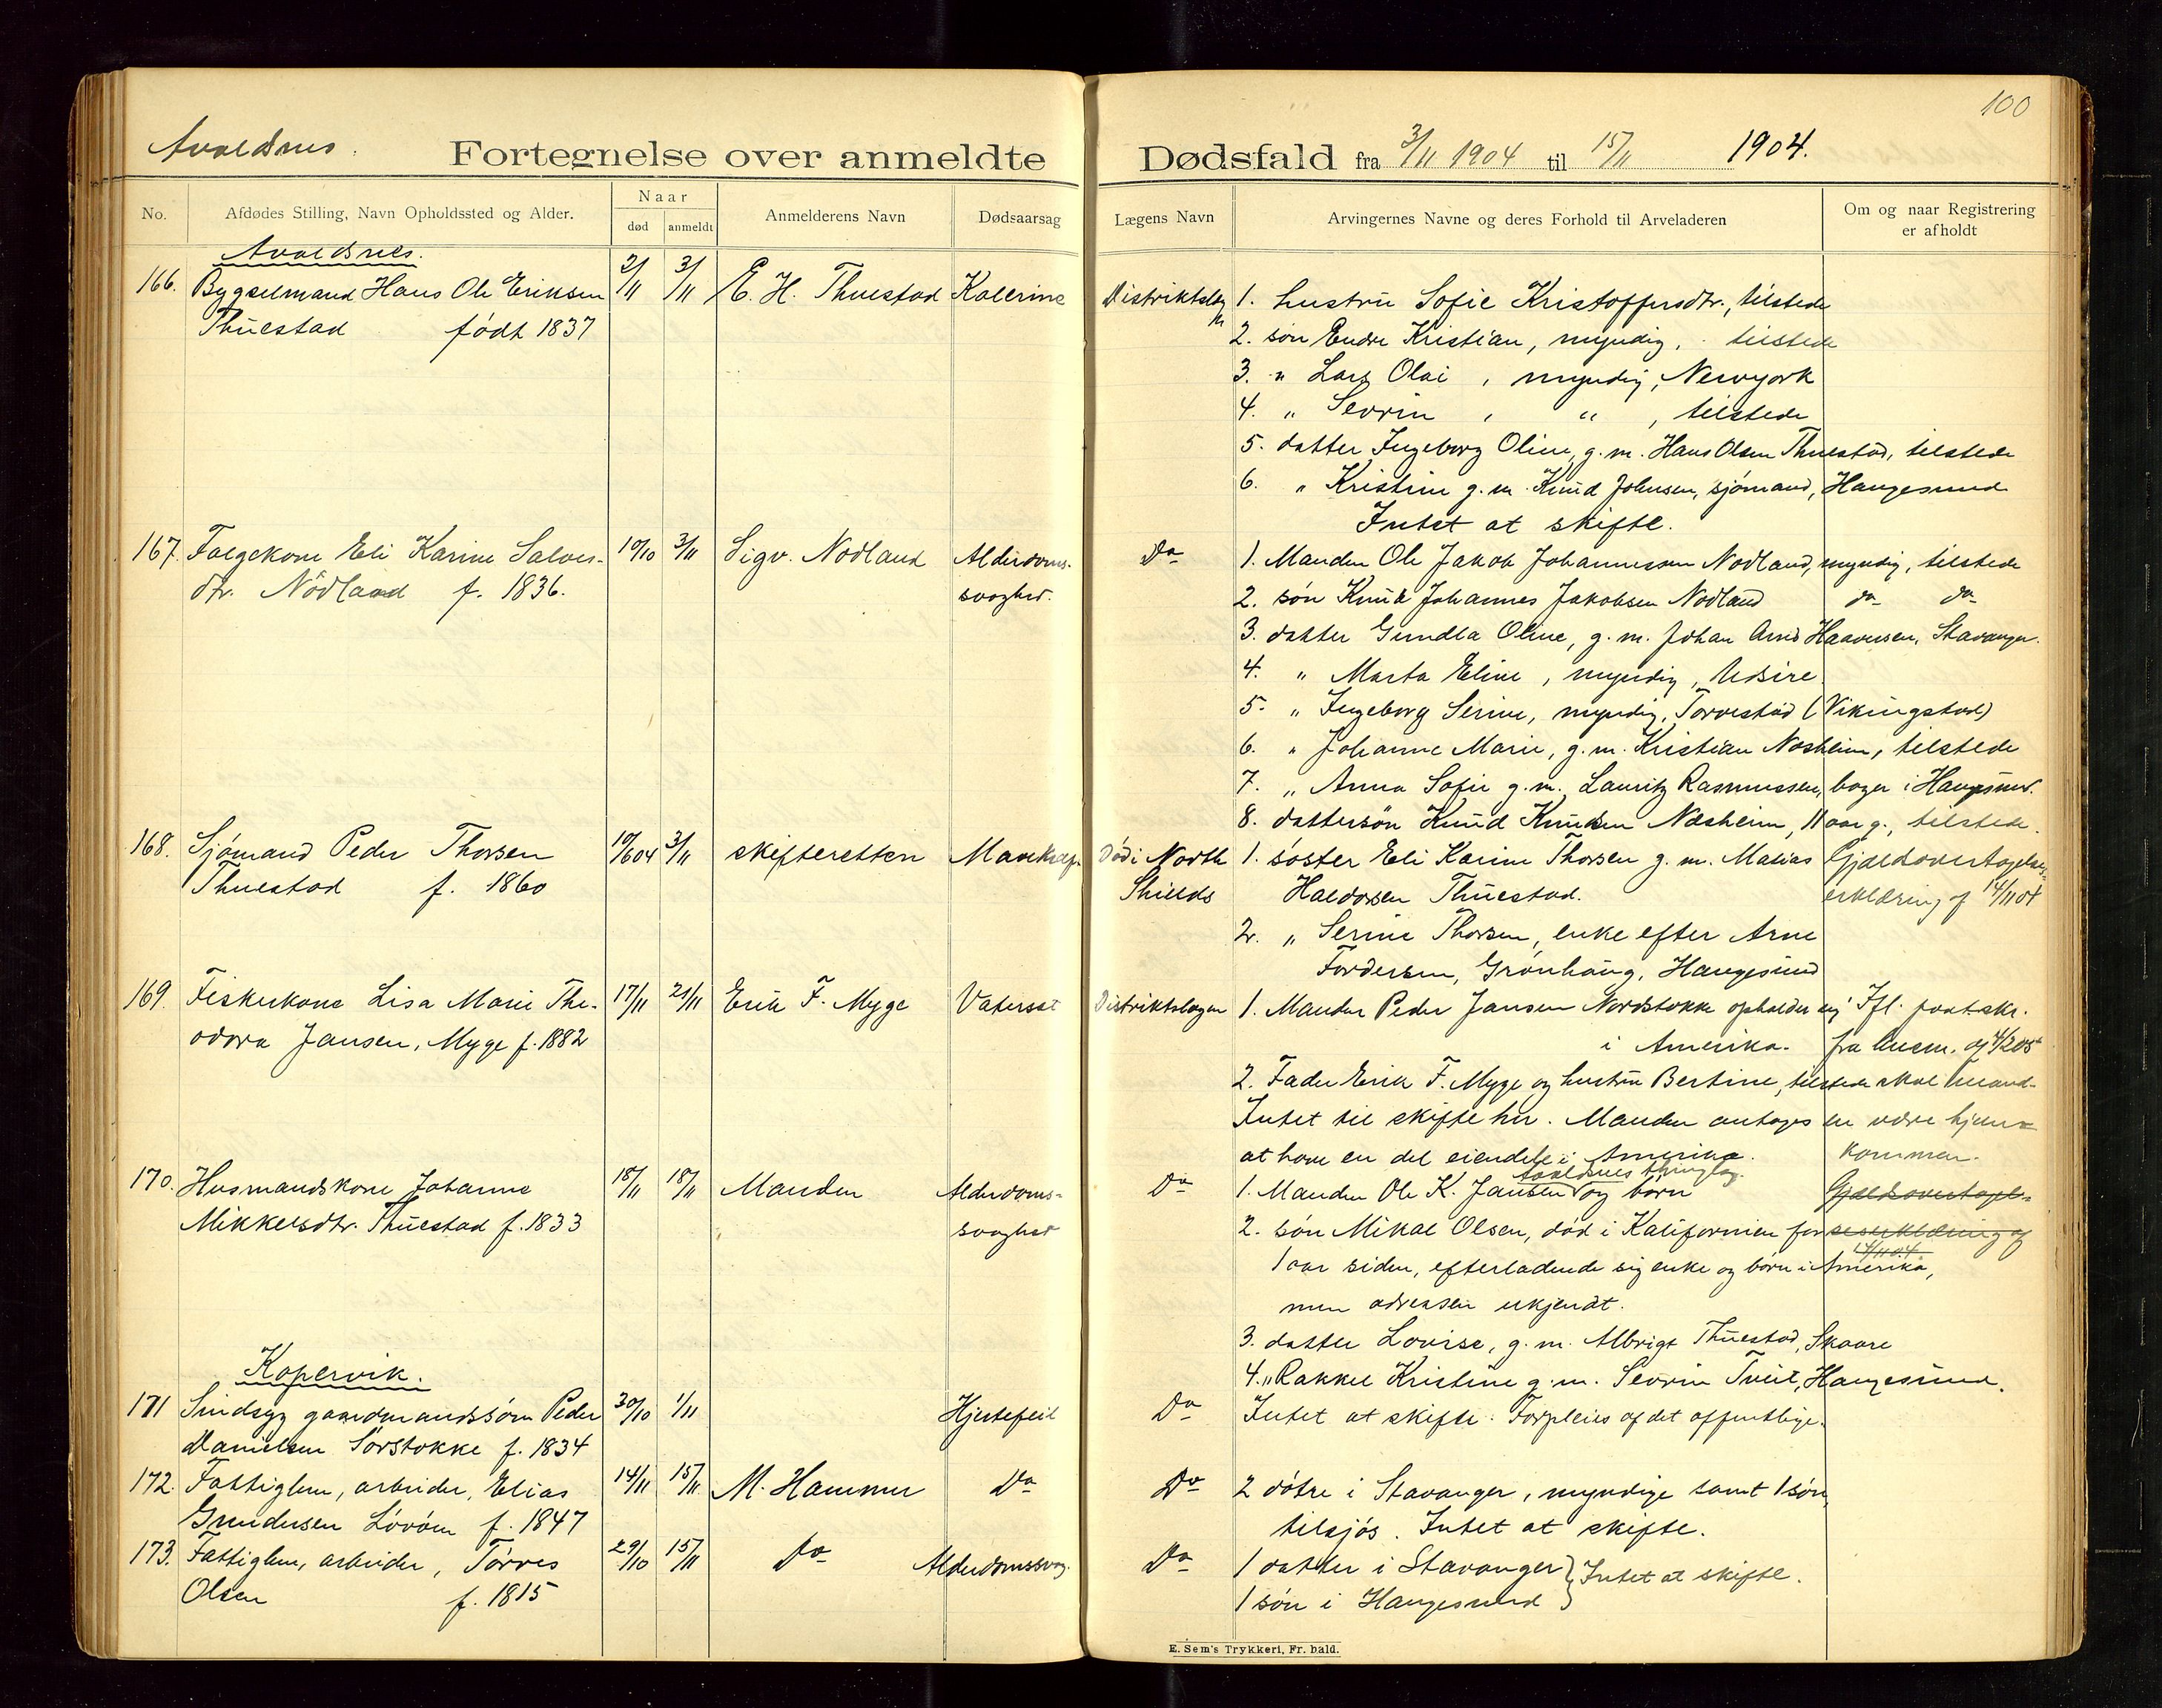 100
Avaldsnes.
Fortegnelse over anmeldte Dødsfald fra 3/11 1904 til 15/11 1904.
No.
Afdødes Stilling, Navn Opholdssted og Alder.
Naar
død
anmeldt
Anmelderens Navn
Dødsaarsag
Lægens Navn
Arvingernes Navne og deres Forhold til Arveladeren
Om og naar Registrering
er afholdt
Avaldsnes.
166. Bygselmand Hans Ole Eriksen 2/11 3/11 E. H. Thuestad Kolerine
Thuestad født 1837
Distriktslæg
1. hustru Sofie Kristoffersdtr., tilstede
2. søn Endre Kristian, myndig, tilstede
3. " Lars Olai, myndig, Newyork
4. " Sevrin, ", tilstede
5. datter Ingeborg Oline, g. m. Hans Olsen Thuestad, tilstede
6. " Kristine g. m. Knud Johnsen, sjømand, Haugesund
Intet at skifte.
167. Folgekone Eli Karine Salves- 10/10 3/11 Sigv. Nodland Alderdoms-
dtr. Nödland f. 1836. svaghed.
Do
1. Manden Ole Jakob Johannessen Nodland, myndig, tilstede
2. søn Knud Johannes Jakobsen Nodland do do
3. datter Gundla Oline, g. m. Johan Arnd Haaversen, Stavanger.
4. " Marta Eline, myndig, Udsire.
5. " Ingeborg Serine, myndig, Torvestad (Vikingstad)
6. " Johanne Marie, g. m. Kristian Nosheim, tilstede
7. " Anna Sofie g. m. Lauritz Rasmussen, boger i Haugesund.
8. dattersøn Knud Knudsen Næsheim, 11 aar g., tilstede.
168. Sjømand Peder Thorsen 10/6 04 3/11 skifteretten
Thuestad f. 1860
Død i North
Shields
1. søster Eli Karine Thorsen g. m. Matias
Haldorsen Thuestad.
2. " Serine Thorsen, enke efter Arne
Tordersen, Grönhaug, Haugesund
Gjældsovertagelses-
erklæring af 14/11 04
169. Fiskerkone Lisa Marie The- 17/11 21/11 Erik F. Myge Vatersot
odora Jansen, Myge f. 1882
Distriktslægen
1. Manden Peder Jansen Nordstokke opholder sig
i Amerika.
2. Fader Erik F. Myge og hustru Bertine, tilstede
Intet til skifte her. Manden antages
at have en del eiendele i Amerika.
Ifl. paatskr.
fra lensm. af 4/2 05
skal mand-
en være hjem-
kommen.
170. Husmandskone Johanne 18/11 18/11 Manden Alderdoms-
Mikkelsdtr. Thuestad f. 1833 svaghed
Do
Avaldsnes thinglag.
1. Manden Ole K. Jansen og børn
2. søn Mikal Olsen, død i Kalifornien for
1 aar siden, efterladende sig enke og børn i Amerika,
men adressen ukjendt.
3. datter Lovise, g. m. Albrigt Thuestad, Skaare
4. " Rakkel Kristine g. m. Sevrin Tveit, Haugesund.
Gjældsovertagel-
seserklæring af
14/11 04
Kopervik.
171 Sindsyg gaardmandssøn Peder 30/10 1/11 Hjertefeil
Danielsen Sørstokke f. 1834
Do
Intet at skifte. Forpleies af det offentlige.
172. Fattiglem, arbeider, Elias 14/11 15/11 M. Hammer Do
Gundersen Lövöen f. 1847
Do
2 døtre i Stavanger, myndige samt 1 søn,
tilsjøs. Intet at skifte.
173. Fattiglem, arbeider, Torres 29/10 15/11 Do Alderdomssvag.
Olsen f. 1815
Do
1 datter i Stavanger } Intet at skifte.
1 søn i Haugesund
E. Sem's Trykkeri, Fr. hald.